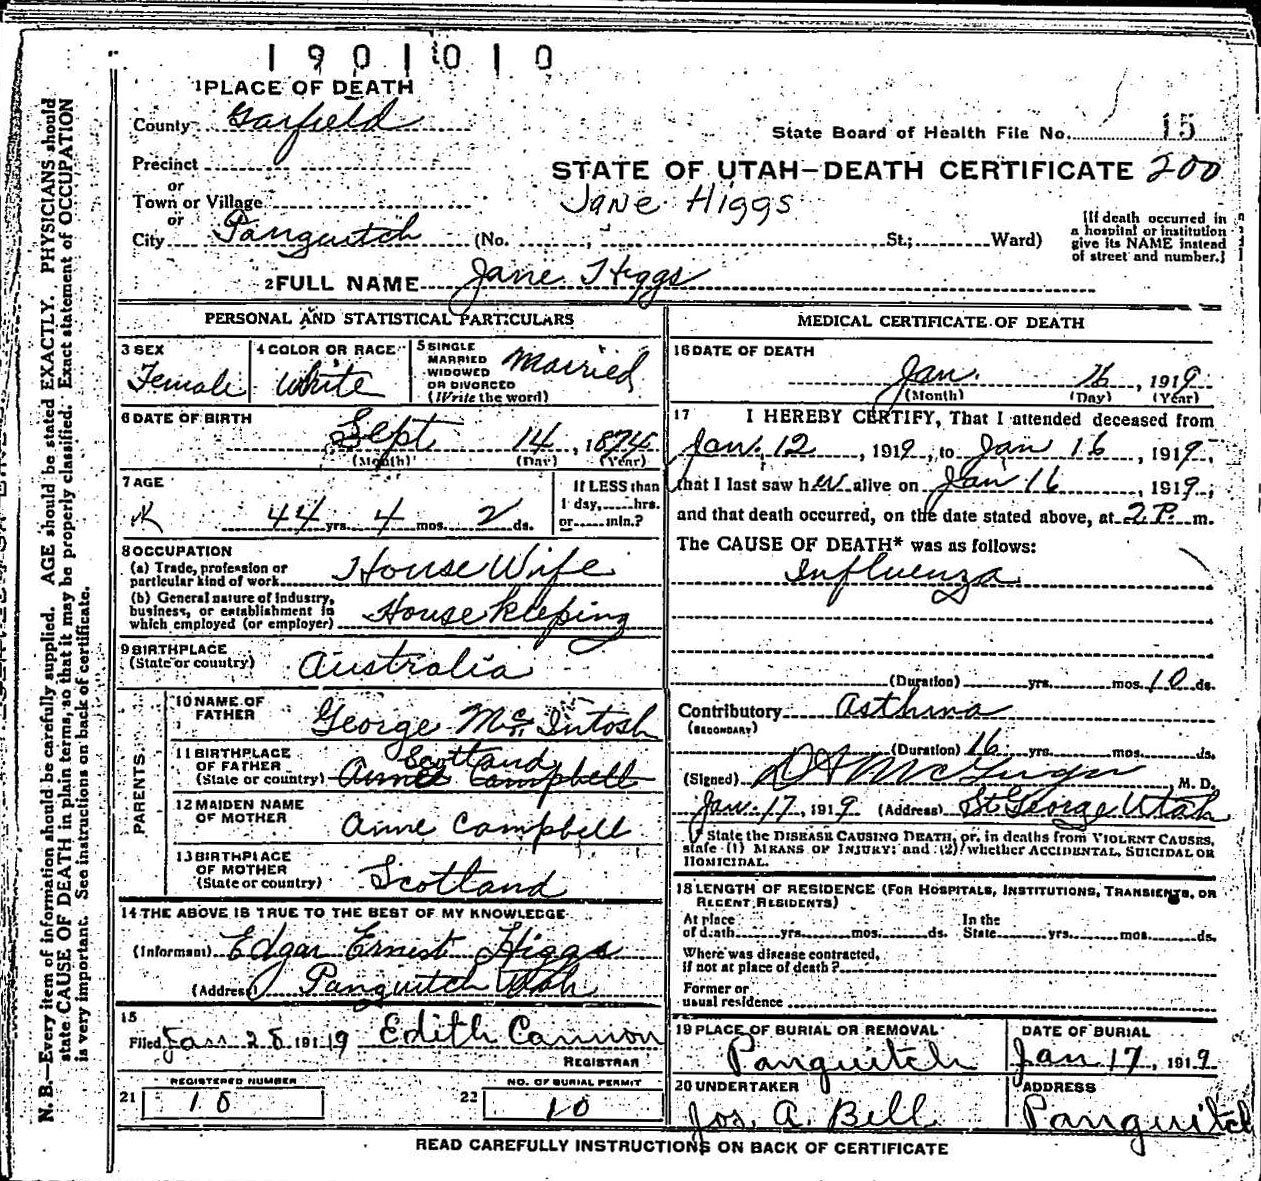 1901010
1 PLACE OF DEATH
County Garfield
State Board of Health File No. 15
Precinct
or
STATE OF UTAH—DEATH CERTIFICATE 200
Town or Village
Jane Higgs
or
City Panguitch (No. ; St.; Ward)
[If death occurred in
a hospital or institution
give its NAME instead
of street and number.]
2 FULL NAME Jane Higgs
PERSONAL AND STATISTICAL PARTICULARS
3 SEX
Female
4 COLOR OR RACE
White
5 SINGLE
MARRIED
WIDOWED
OR DIVORCED
(Write the word)
Married
6 DATE OF BIRTH
Sept 14, 1874
(Month) (Day) (Year)
7 AGE
44 yrs. 4 mos. 2 ds.
If LESS than
1 day, hrs.
or min.?
8 OCCUPATION
(a) Trade, profession or
particular kind of work House Wife
(b) General nature of industry,
business, or establishment in
which employed (or employer) House Keeping
9 BIRTHPLACE
(State or country) Australia
PARENTS
10 NAME OF
FATHER George McIntosh
11 BIRTHPLACE
OF FATHER Scotland
(State or country) Anne Campbell
12 MAIDEN NAME
OF MOTHER Anne Campbell
13 BIRTHPLACE
OF MOTHER
(State or country) Scotland
14 THE ABOVE IS TRUE TO THE BEST OF MY KNOWLEDGE
(Informant) Edgar Ernest Higgs
(Address) Panguitch Utah
15
Filed Jan 28 1919 Edith Cannon
REGISTRAR
REGISTERED NUMBER
21 10
NO. OF BURIAL PERMIT
22 10
MEDICAL CERTIFICATE OF DEATH
16 DATE OF DEATH
Jan. 16, 1919
(Month) (Day) (Year)
17 I HEREBY CERTIFY, That I attended deceased from
Jan. 12, 1919, to Jan 16, 1919,
that I last saw her alive on Jan 16, 1919,
and that death occurred, on the date stated above, at 2 P. m.
The CAUSE OF DEATH* was as follows:
Influenza
(Duration) yrs. mos. 10 ds.
Contributory Asthma
(SECONDARY)
(Duration) 16 yrs. mos. ds.
(Signed) M. D.
Jan. 17, 1919 (Address) St George Utah
* State the DISEASE CAUSING DEATH, or, in deaths from VIOLENT CAUSES,
state (1) MEANS OF INJURY; and (2) whether ACCIDENTAL, SUICIDAL OR
HOMICIDAL.
18 LENGTH OF RESIDENCE (FOR HOSPITALS, INSTITUTIONS, TRANSIENTS, OR
RECENT RESIDENTS)
At place
of death yrs. mos. ds.
In the
State yrs. mos. ds.
Where was disease contracted,
if not at place of death?
Former or
usual residence
19 PLACE OF BURIAL OR REMOVAL
Panguitch
DATE OF BURIAL
Jan 17, 1919
20 UNDERTAKER
Jos. A. Bell
ADDRESS
Panguitch
READ CAREFULLY INSTRUCTIONS ON BACK OF CERTIFICATE
N. B.—Every item of information should be carefully supplied. AGE should be stated EXACTLY. PHYSICIANS should
state CAUSE OF DEATH in plain terms, so that it may be properly classified. Exact statement of OCCUPATION
is very important. See instructions on back of certificate.